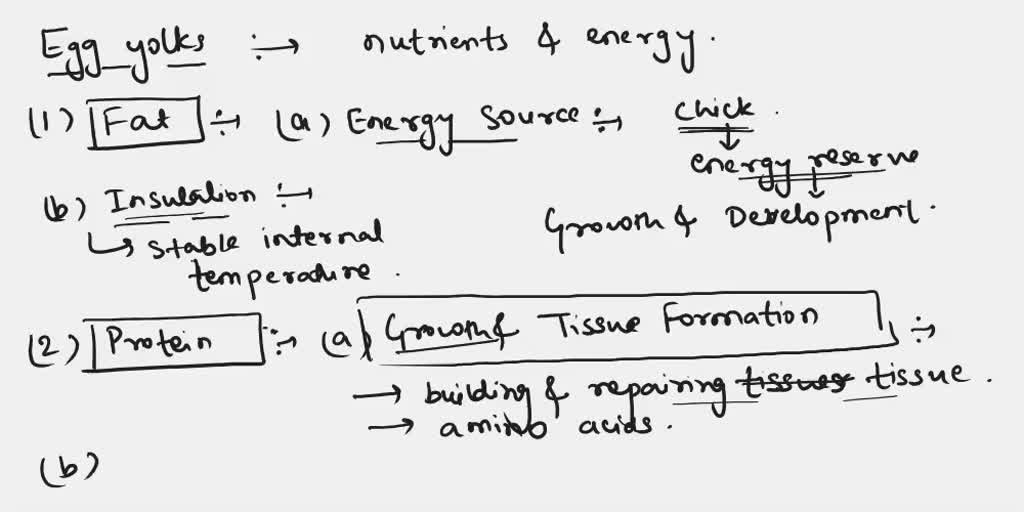 Egg yolks ÷→ nutrients & energy.
(1) Fat ÷→ (a) Energy Source ÷→ Chick.
↓
energy reserve
↓
Growth & Development.
(b) Insulation ÷→
↳ stable internal
temperature.
(2) Protein ÷→ (a) Growth & Tissue Formation ÷→
→ building & repairing tissues tissue.
→ amino acids.
(b)